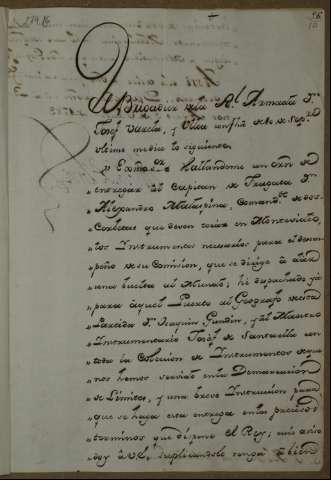 El Brigadier de la Rl. Armada Dn.
Josef Varela, y Ulloa con fha. de de Sepre.
Ultimo me dice lo siguiente.
"Exmo. Sor. Hallandome con orn. de
"entregar al Capitan de Fragata Dn.
"Alexandro Malaspina, Comandte. de dos
"Corbetas que deven tocar en Montevideo,
"los Instrumentos necesarios para el desem
"peño de su Comision, que se dirige à dàr
"una buelta al Mundo; hé despachado ya
"para aquel Puerto al Geografo de esta
"Partida Dn. Joaquin Gundin, y al Maestro
"Instrumentario Josef de Santaella con
"toda la Coleccion de Instrumentos de que
"nos hemos servido en la Demarcacion
"de Limites, y una breve Instruccion para
"que se haga esta entrega en los precisos
"terminos que dispone el Rey; cuio aviso
"doy à V.E. suplicandole tenga à bien